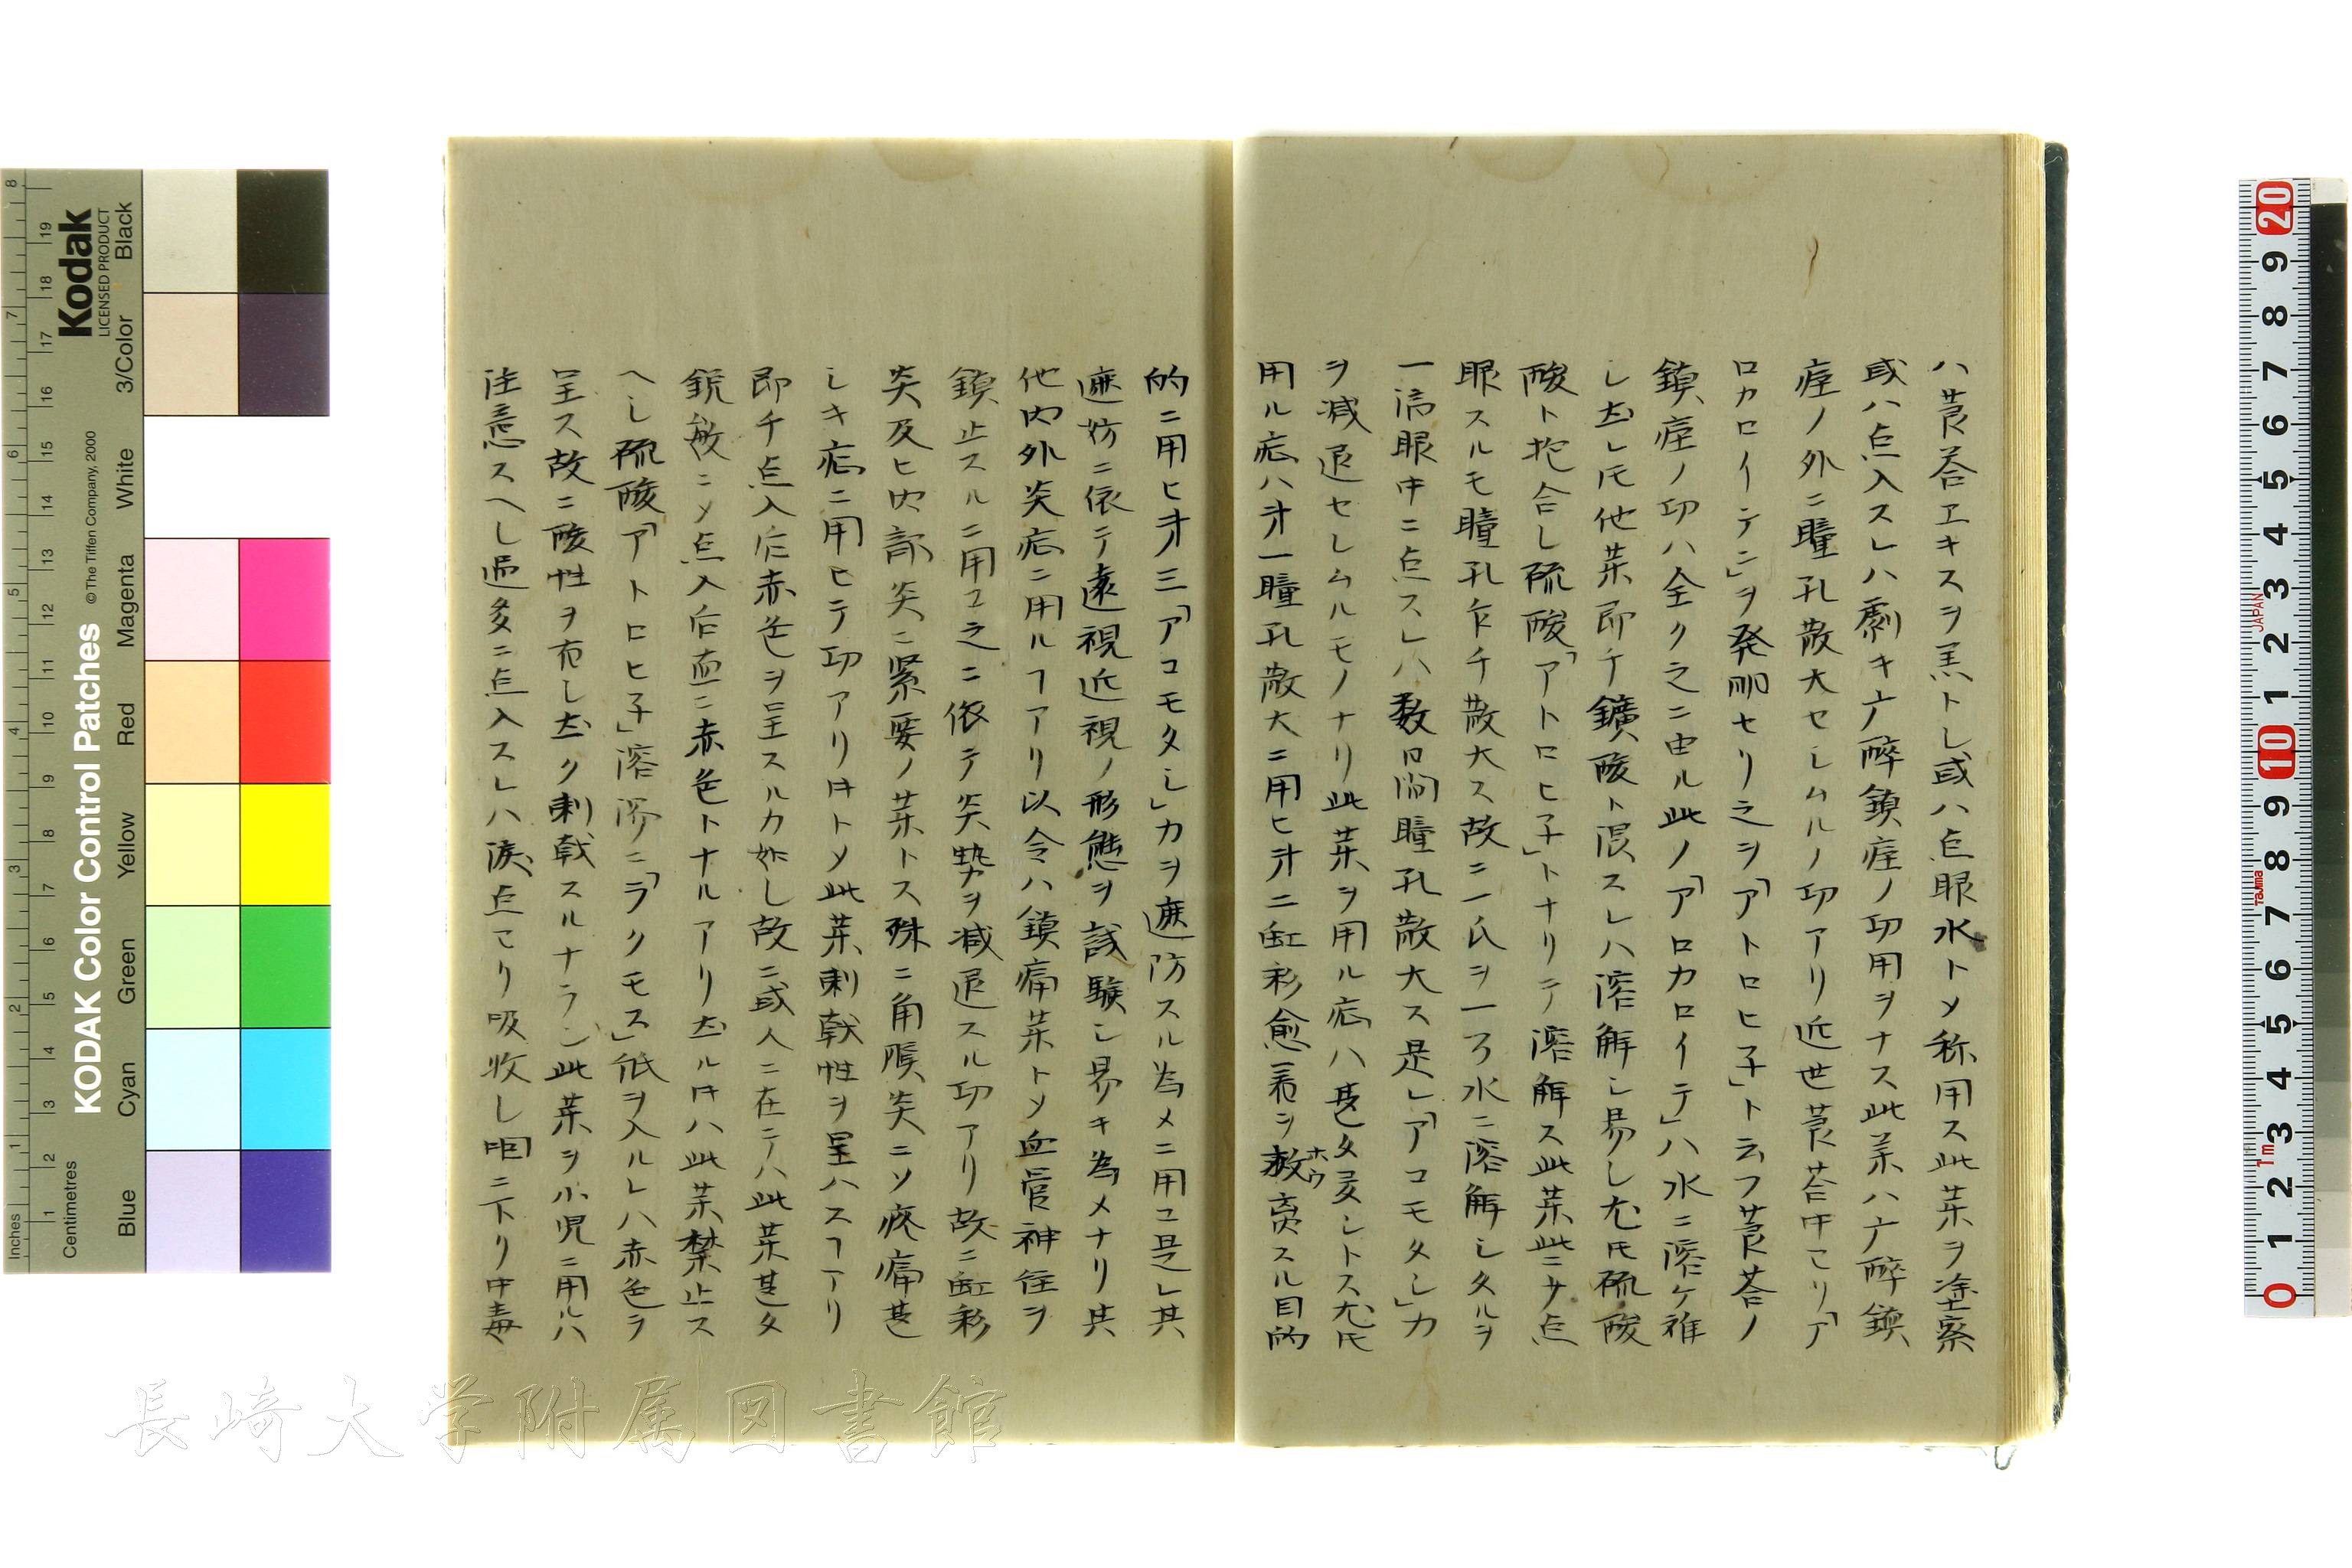 ハ莨菪エキスヲ羔トし或ハ点眼水トメ称用ス此薬ヲ塗察
或ハ点入スレハ劇キ广酔鎮痙ノ功用ヲナス此薬ハ广酔鎮
痙ノ外ニ瞳孔散大セしムルノ功アリ近世莨菪中ヨリ「ア
ロカロイテン」ヲ発明セリ之ヲ「アトロヒ子」ト云フ莨菪ノ
鎮痙ノ功ハ全ク之ニ由ル此ノ「アロカロイテ」ハ水ニ溶ケ雅
し尓レ𪜈他薬即チ鑛酸ト混スレハ溶解し易し尤𪜈硫酸
酸ト抱合し硫酸「アトロヒ子」トナリテ溶解ス此薬此ニサ点
眼スルモ瞳孔乍チ散大ス故ニ一氏ヲ一ろ水ニ溶解しタルヲ
一滴眼中ニ点スレハ数日間瞳孔散大ス是レ「アコモタし」カ
ヲ減退セしムルモノナリ此薬ヲ用ル症ハ甚タ夛しトス尤𪜈
用ル症ハ㐧一瞳孔散大ニ用ヒ㐧二虹彩愈着ヲ救ホウ裔スル目的
的ニ用ヒ㐧三「アコモタし」カヲ遮防スル為メニ用ユ是レ其
遮妨ニ依テ遠視近視ノ形態ヲ試験し易キ為メナリ其
他内外炎症ニ用ルヿアリ以令ハ鎮痛薬トメ血管神経ヲ
鎮止スルニ用ユ之ニ依テ炎勢ヲ減退スル功アリ故ニ虹彩
炎及ヒ内部炎ニ緊要ノ薬トス殊ニ角膜炎ニソ疼痛甚
しキ症ニ用ヒテ功アリ𪜈トメ此薬刺戟性ヲ呈ハスヿアリ
即チ点入后赤色ヲ呈スルカ如し故ニ或人ニ在テハ此薬甚タ
鋭敏ニメ点入后直ニ赤色トナルアリ尓ル𪜈ハ此薬禁止ス
ヘし硫酸「アトロヒ子」溶液ニ「ラクモス」紙ヲ入ルレハ赤色ヲ
呈ス故ニ酸性ヲ有し尓ク刺戟スルナラン此薬ヲ小児ニ用ルハ
注意スヘし過多ニ点入スレハ涙点ヨリ吸收し咽ニ下リ中毒
Kodak
LICENSED PRODUCT
KODAK Color Control Patches
© The Tiffen Company, 2000
Inches
Centimetres
Blue
Cyan
Green
Yellow
Red
Magenta
White
3/Color
Black
JAPAN
Tajima
長崎大学附属図書館